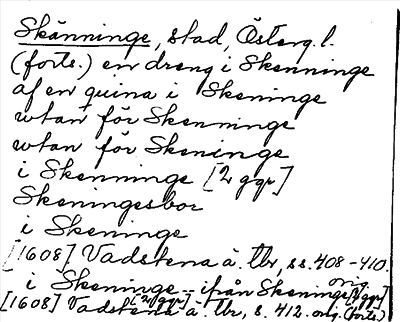 Skänninge, stad, Österg. l.
(forts.) en dreng i Skenninge
af en quina i Skeninge
utan för Skenninge
utan för Skeninge
i Skenninge [2 ggr]
Skeningesbor
i Skeninge
[1608] Vadstena ä. tbr, ss. 408-410. orig.
i Skeninge [2 ggr] - ifrån Skeninge [2 ggr]
[1608] Vadstena ä. tbr, s. 412. orig. (forts.)